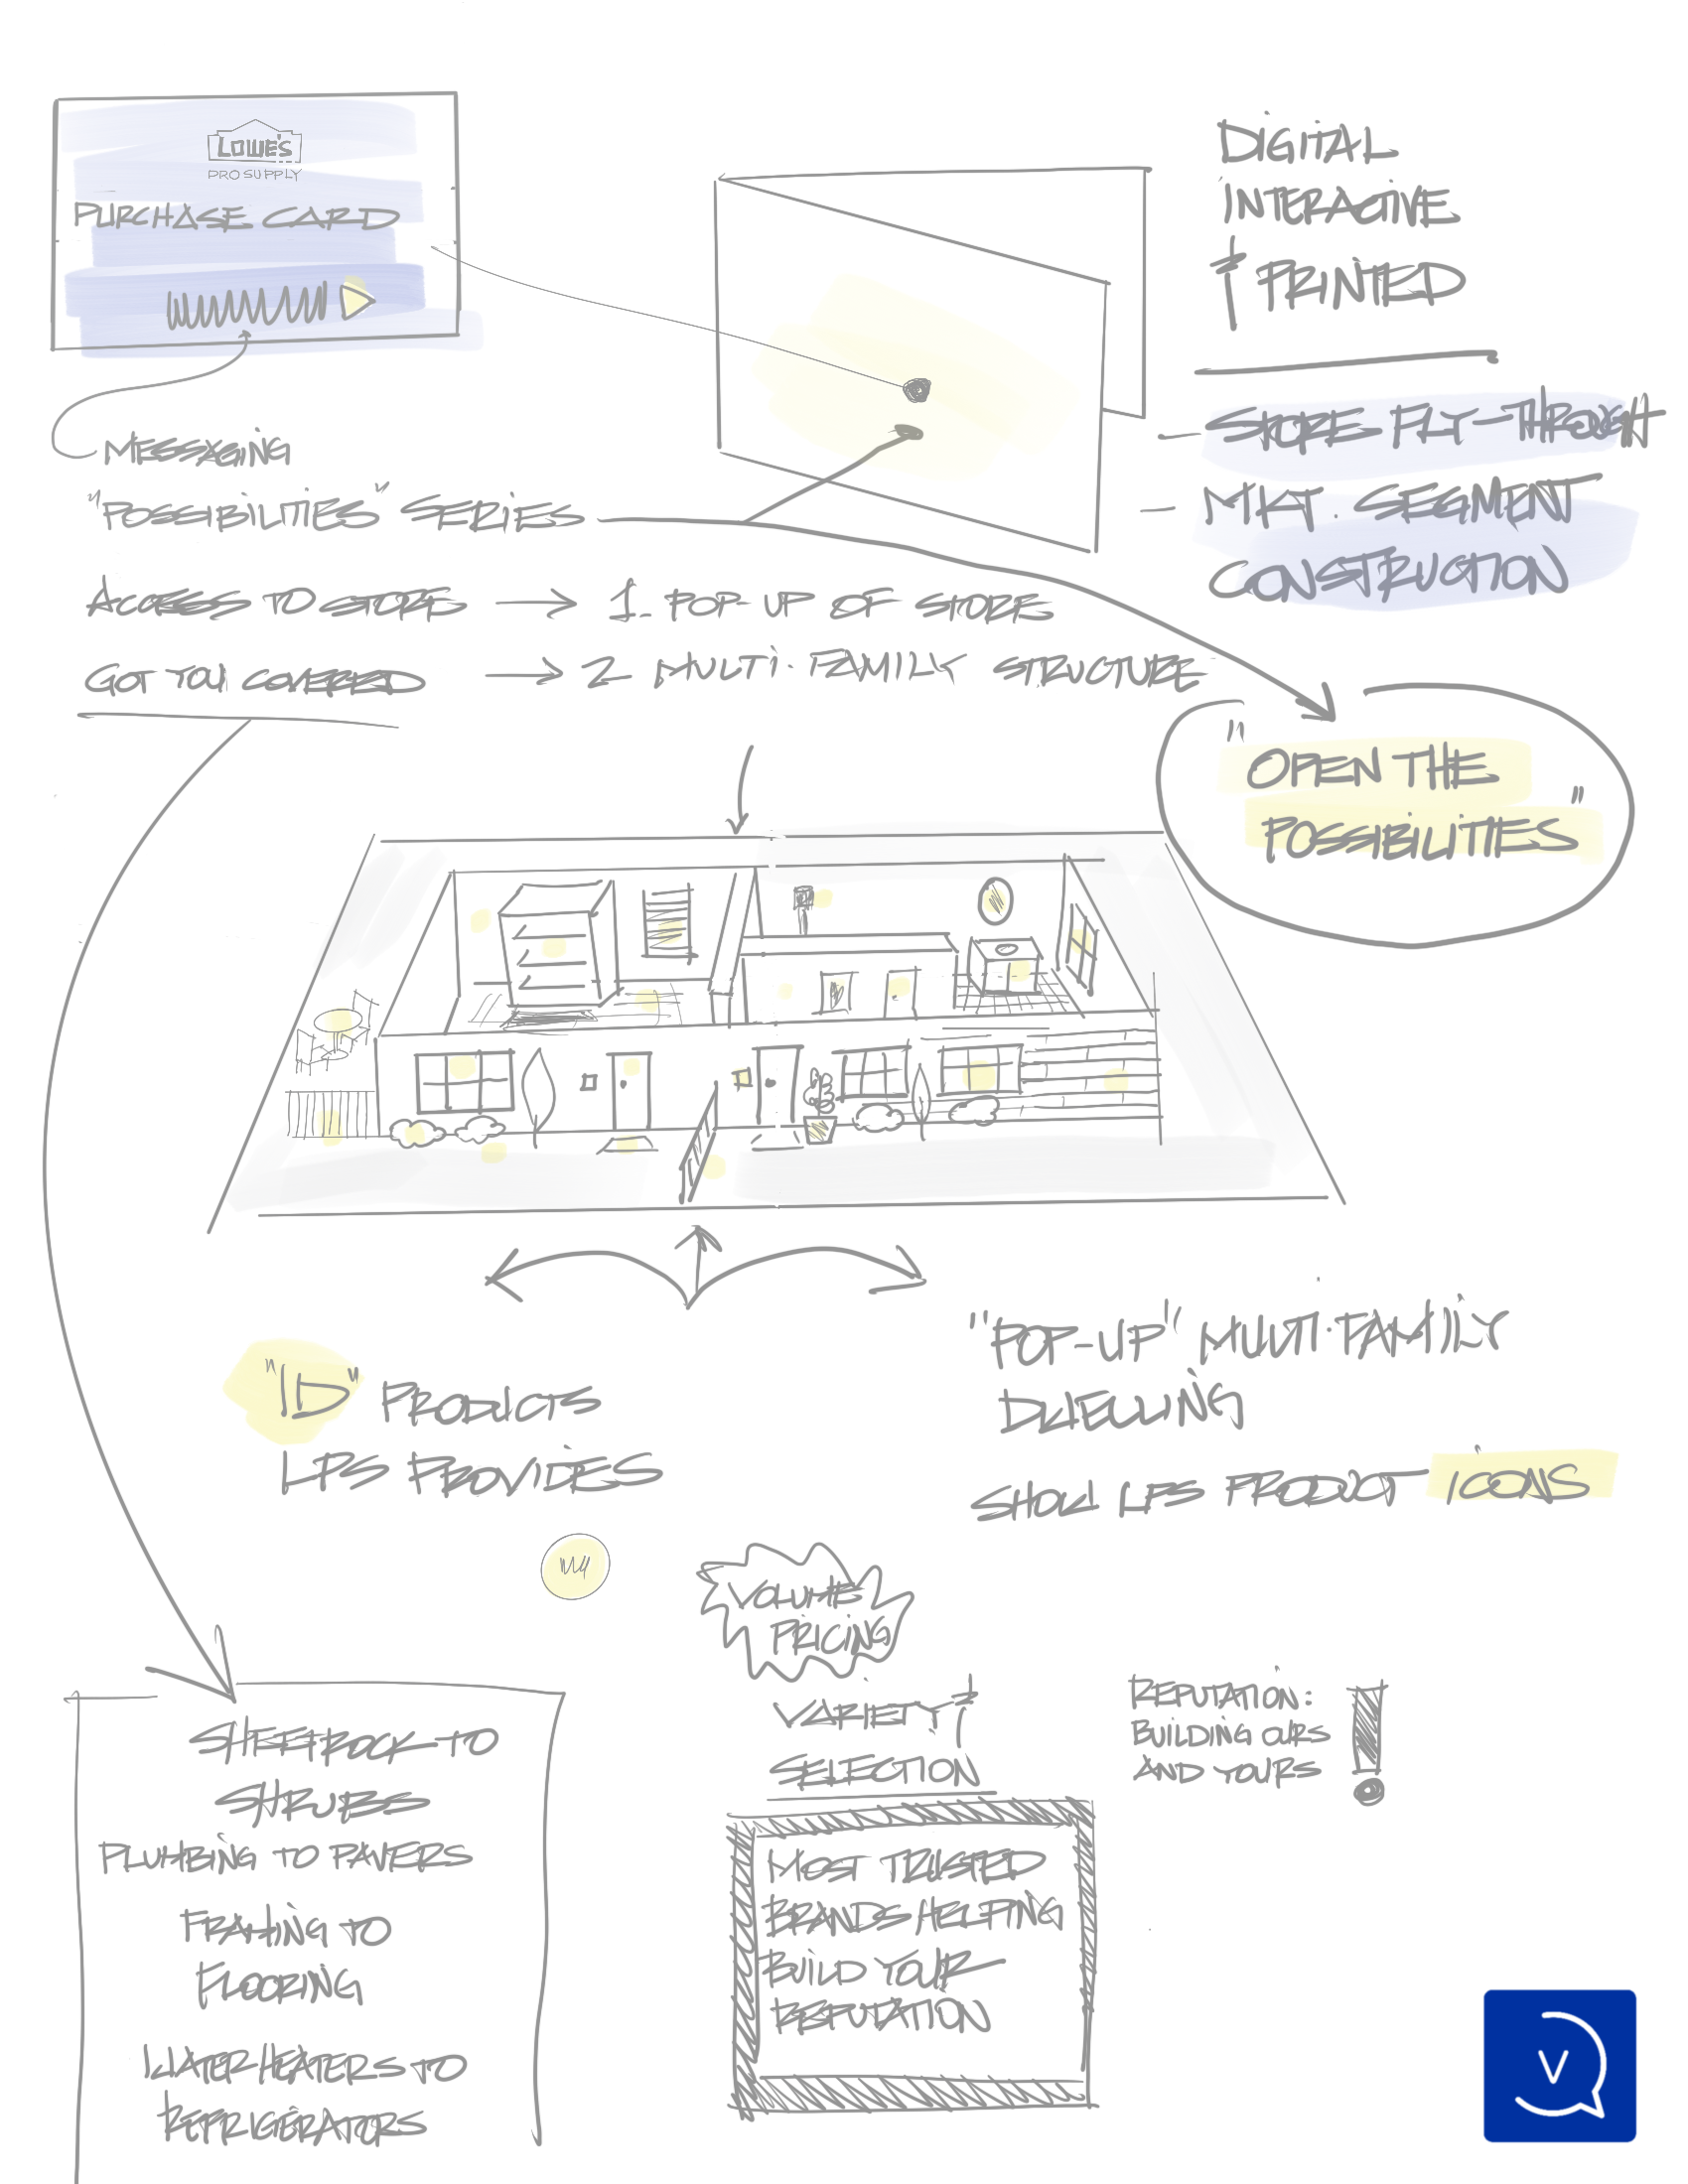 LOWE'S
PRO SUPPLY
PURCHASE CARD
DIGITAL
INTERACTIVE
& PRINTED
- STORE FLY-THROUGH
- MKT. SEGMENT
CONSTRUCTION
MESSAGING
"POSSIBILITIES" SERIES
ACCESS TO STORE → 1- POP-UP OF STORE
GOT YOU COVERED → 2 MULTI-FAMILY STRUCTURE
"OPEN THE
POSSIBILITIES"
"ID" PRODUCTS
LPS PROVIDES
"POP-UP" MULTI-FAMILY
DWELLING
SHOW LPS PRODUCT ICONS
VOLUME
PRICING
VARIETY &
SELECTION
MOST TRUSTED
BRANDS HELPING
BUILD YOUR
REPUTATION
REPUTATION:
BUILDING OURS
AND YOURS !
SHEETROCK TO
SHRUBS
PLUMBING TO PAVERS
FRAMING TO
FLOORING
WATER HEATERS TO
REFRIGERATORS
V